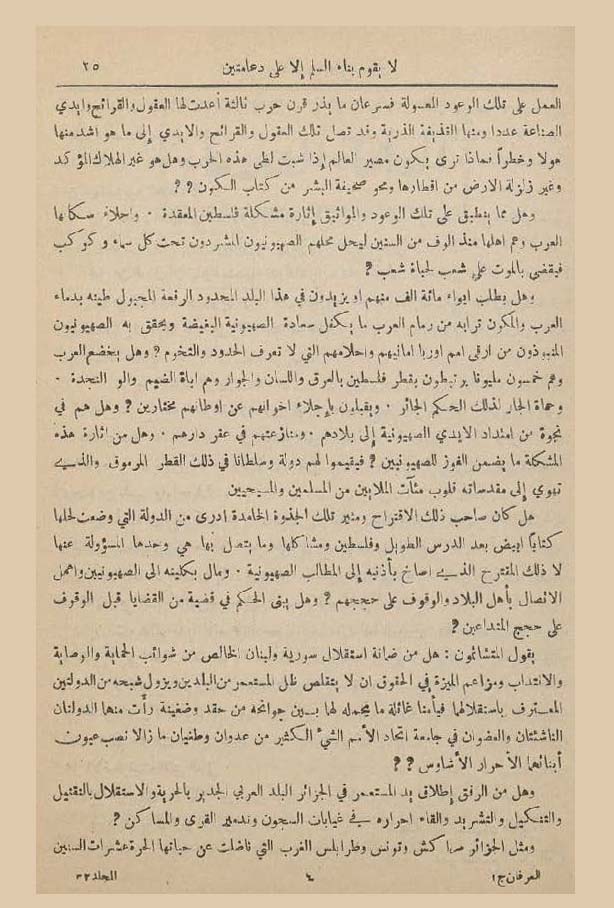 لا يقوم بناء السلم إلا على دعامتين ٢٥
العمل على تلك الوعود المعسولة فسرعان ما يذر قرن حرب ثالثة أعدت لها العقول والقرائح وايدي
الصناعة عددا ومنها القذيفة الذرية وقد تصل تلك العقول والقرائح والايدي إلى ما هو اشد منها
هولا وخطراً فماذا ترى يكون مصير العالم إذا شبت لظى هذه الحرب وهل هو غير الهلاك المؤكد
وغير زلزلة الارض من اقطارها ومحو صحيفة البشر من كتاب الكون ? ?
وهل مما ينطبق على تلك الوعود والمواثيق إثارة مشكلة فلسطين المعقدة ٠ واجلاء سكانها
العرب وهم اهلها منذ الوف من السنين ليحل محلهم الصهيونيون المشردون تحت كل سماء وكوكب
فيقضى بالموت على شعب لحياة شعب ?
وهل بطلب ايواء مائة الف منهم او يزيدون في هذا البلد المحدود الرقعة المجبول طينه بدماء
العرب والمكون ترابه من رمام العرب ما يكفل سعادة الصهيونية البغيضة ويحقق به الصهيونيون
المنبوذون من ارقى امم اوربا امانيهم واحلامهم التي لا تعرف الحدود والتخوم ? وهل يخضع العرب
وهم خمسون مليونا يرتبطون بقطر فلسطين بالعرق واللسان والجوار وهم اباة الضيم والو النجدة ٠
وحماة الجار لذلك الحكم الجائر ٠ ويقبلون بإجلاء اخوانهم عن اوطانهم مختارين ? وهل هم في
نجوة من امتداد الايدي الصهيونية إلى بلادهم ٠ ومنازعتهم في عقر دارهم ٠ وهل من اثارة هذه
المشكلة ما يضمن الفوز للصهيونيين ? فيقيموا لهم دولة وسلطانا في ذلك القطر المرموق والذي
تهوي إلى مقدساته قلوب مئآت الملايين من المسلمين والمسيحيين
هل كان صاحب ذلك الاقتراح ومثير تلك الجذوة الخامدة ادرى من الدولة التي وضعت لحلها
كتابًا ابيض بعد الدرس الطويل وفلسطين ومشاكلها وما يتصل بها هي وحدها المسؤولة عنها
لا ذلك المقترح الذي اصاخ بأذنيه إلى المطالب الصهيونية ٠ ومال بكليته الى الصهيونيين واهمل
الاتصال بأهل البلاد والوقوف على حججهم ? وهل يبنى الحكم في قضية من القضايا قبل الوقوف
على حجج المتداعين ?
يقول المتشائمون : هل من ضمانة استقلال سورية ولبنان الخالص من شوائب الحماية والوصاية
والانتداب ومزاعم الميزة في الحقوق ان لا يتقلص ظل المستعمر من البلدين ويزول شبحه من الدولتين
المعترف باستقلالهما فيأمنا غائلة ما يحمله لها بين جوانحه من حقد وضغينة رأت منها الدولتان
الناشئتان والعضوان في جامعة اتحاد الأمم الشيء الكثير من عدوان وطغيان ما زالا نصب عيون
أبنائهما الأحرار الأشاوس ? ?
وهل من الرفق إطلاق يد المستعمر في الجزائر البلد العربي الجدير بالحرية والاستقلال بالتقتيل
والتنكيل والتشريد والقاء احراره في غيابات السجون وتدمير القرى والمساكن ?
ومثل الجزائر مراكش وتونس وطرابلس الغرب التي ناضلت عن حياتها الحرة عشرات السنين
العرفان ج١ ٤ المجلد ٣٢